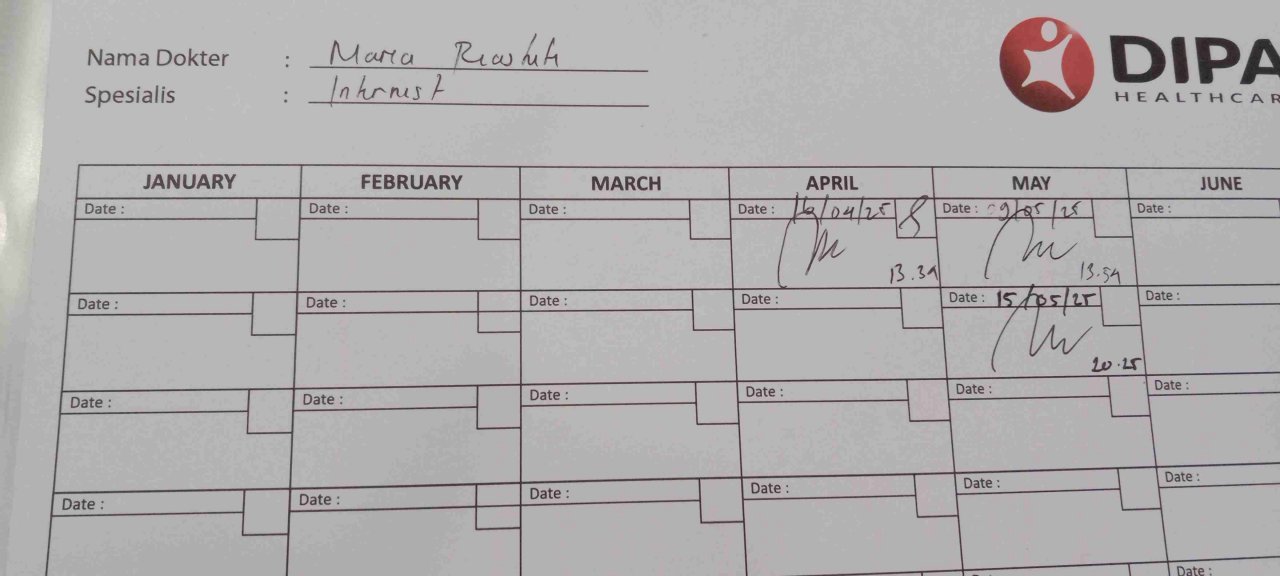 Nama Dokter : Maria
Spesialis : Internist
DIPA
HEALTHCAR
JANUARY FEBRUARY MARCH APRIL MAY JUNE
Date : Date : Date : Date : 16/04/25 Date : 09/05/25 Date :
13.39 13.59
Date : Date : Date : Date : Date : 15/05/25 Date :
20.25
Date : Date : Date : Date : Date : Date :
Date : Date : Date : Date : Date : Date :
Date : Date :